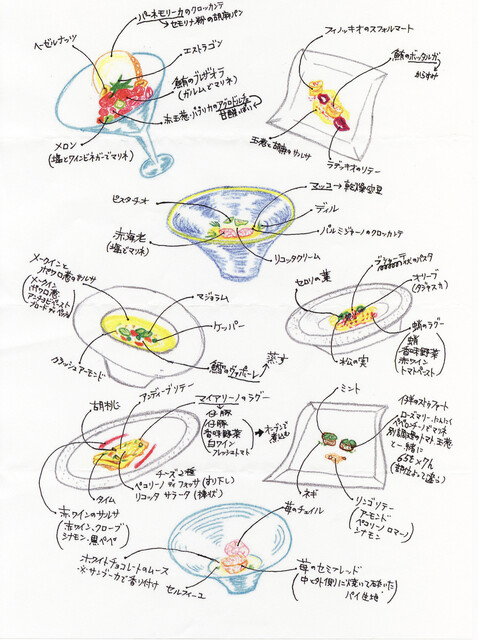 パーネモリーカのクロッカンテ
→セモリナ粉の胡麻パン
ヘーゼルナッツ
エストラゴン
鮪のブレザオラ
(ガルムでマリネ)
赤玉葱・パプリカのアグロドルチェ
甘酢いため
メロン
(塩とワインビネガーでマリネ)
フィノッキオのスフォルマート
鮪のボッタルガ
からすみ
玉葱と胡麻のサルサ
ラディッキオのリゾー
ピスタチオ
マッコ→乾燥空豆
ディル
パルミジャーノのクロッカンテ
リコッタクリーム
赤海老
(塩でマリネ)
メークインと
パプリカ
メークイン
アンチョビペースト
マジョラム
ケッパー
鱈のヴァポーレ→蒸す
クラッシュアーモンド
セロリの葉
オリーブ
(タジャスカ)
蛸のラグー
蛸
香味野菜
赤ワイン
トマトペースト
松の実
胡桃
アンディーブリゾー
マイアリーノのラグー
仔豚
香味野菜
白ワイン
フレッシュトマト
→オーブンで
煮込む
チーズ2種
ペコリーノ ディ フォッサ(すり下し)
リコッタ サラータ(棒状)
タイム
赤ワインのサルサ
(赤ワイン、クローブ
シナモン、黒ペペ)
ミント
ローズマリー、にんにく
ペペロンチーノでマリネ
別調理のトマト、玉葱
と一緒に
ネギ
リンゴリゾー
(アーモンド
ペコリーノ ロマーノ
シナモン)
苺のチェイル
ホワイトチョコレートのムース
※サンブーカで香り付け
セルフィーユ
苺のセミフレッド
(中と外側に焼いて砕いた
パイ生地)